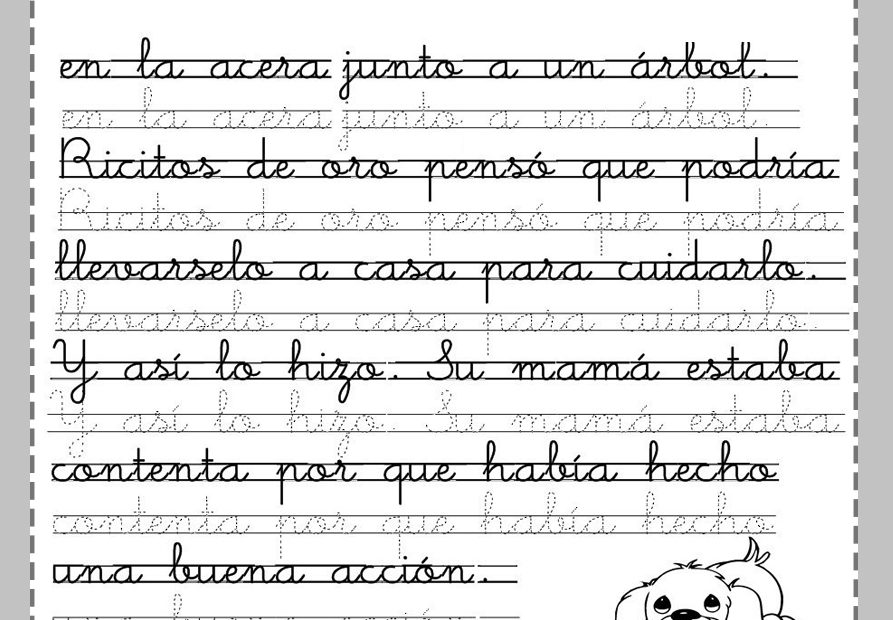 en la acera junto a un árbol.
en la acera junto a un árbol.
Ricitos de oro pensó que podría
Ricitos de oro pensó que podría
llevarselo a casa para cuidarlo.
llevarselo a casa para cuidarlo.
Y así lo hizo. Su mamá estaba
Y así lo hizo. Su mamá estaba
contenta por que había hecho
contenta por que había hecho
una buena acción.
una buena acción